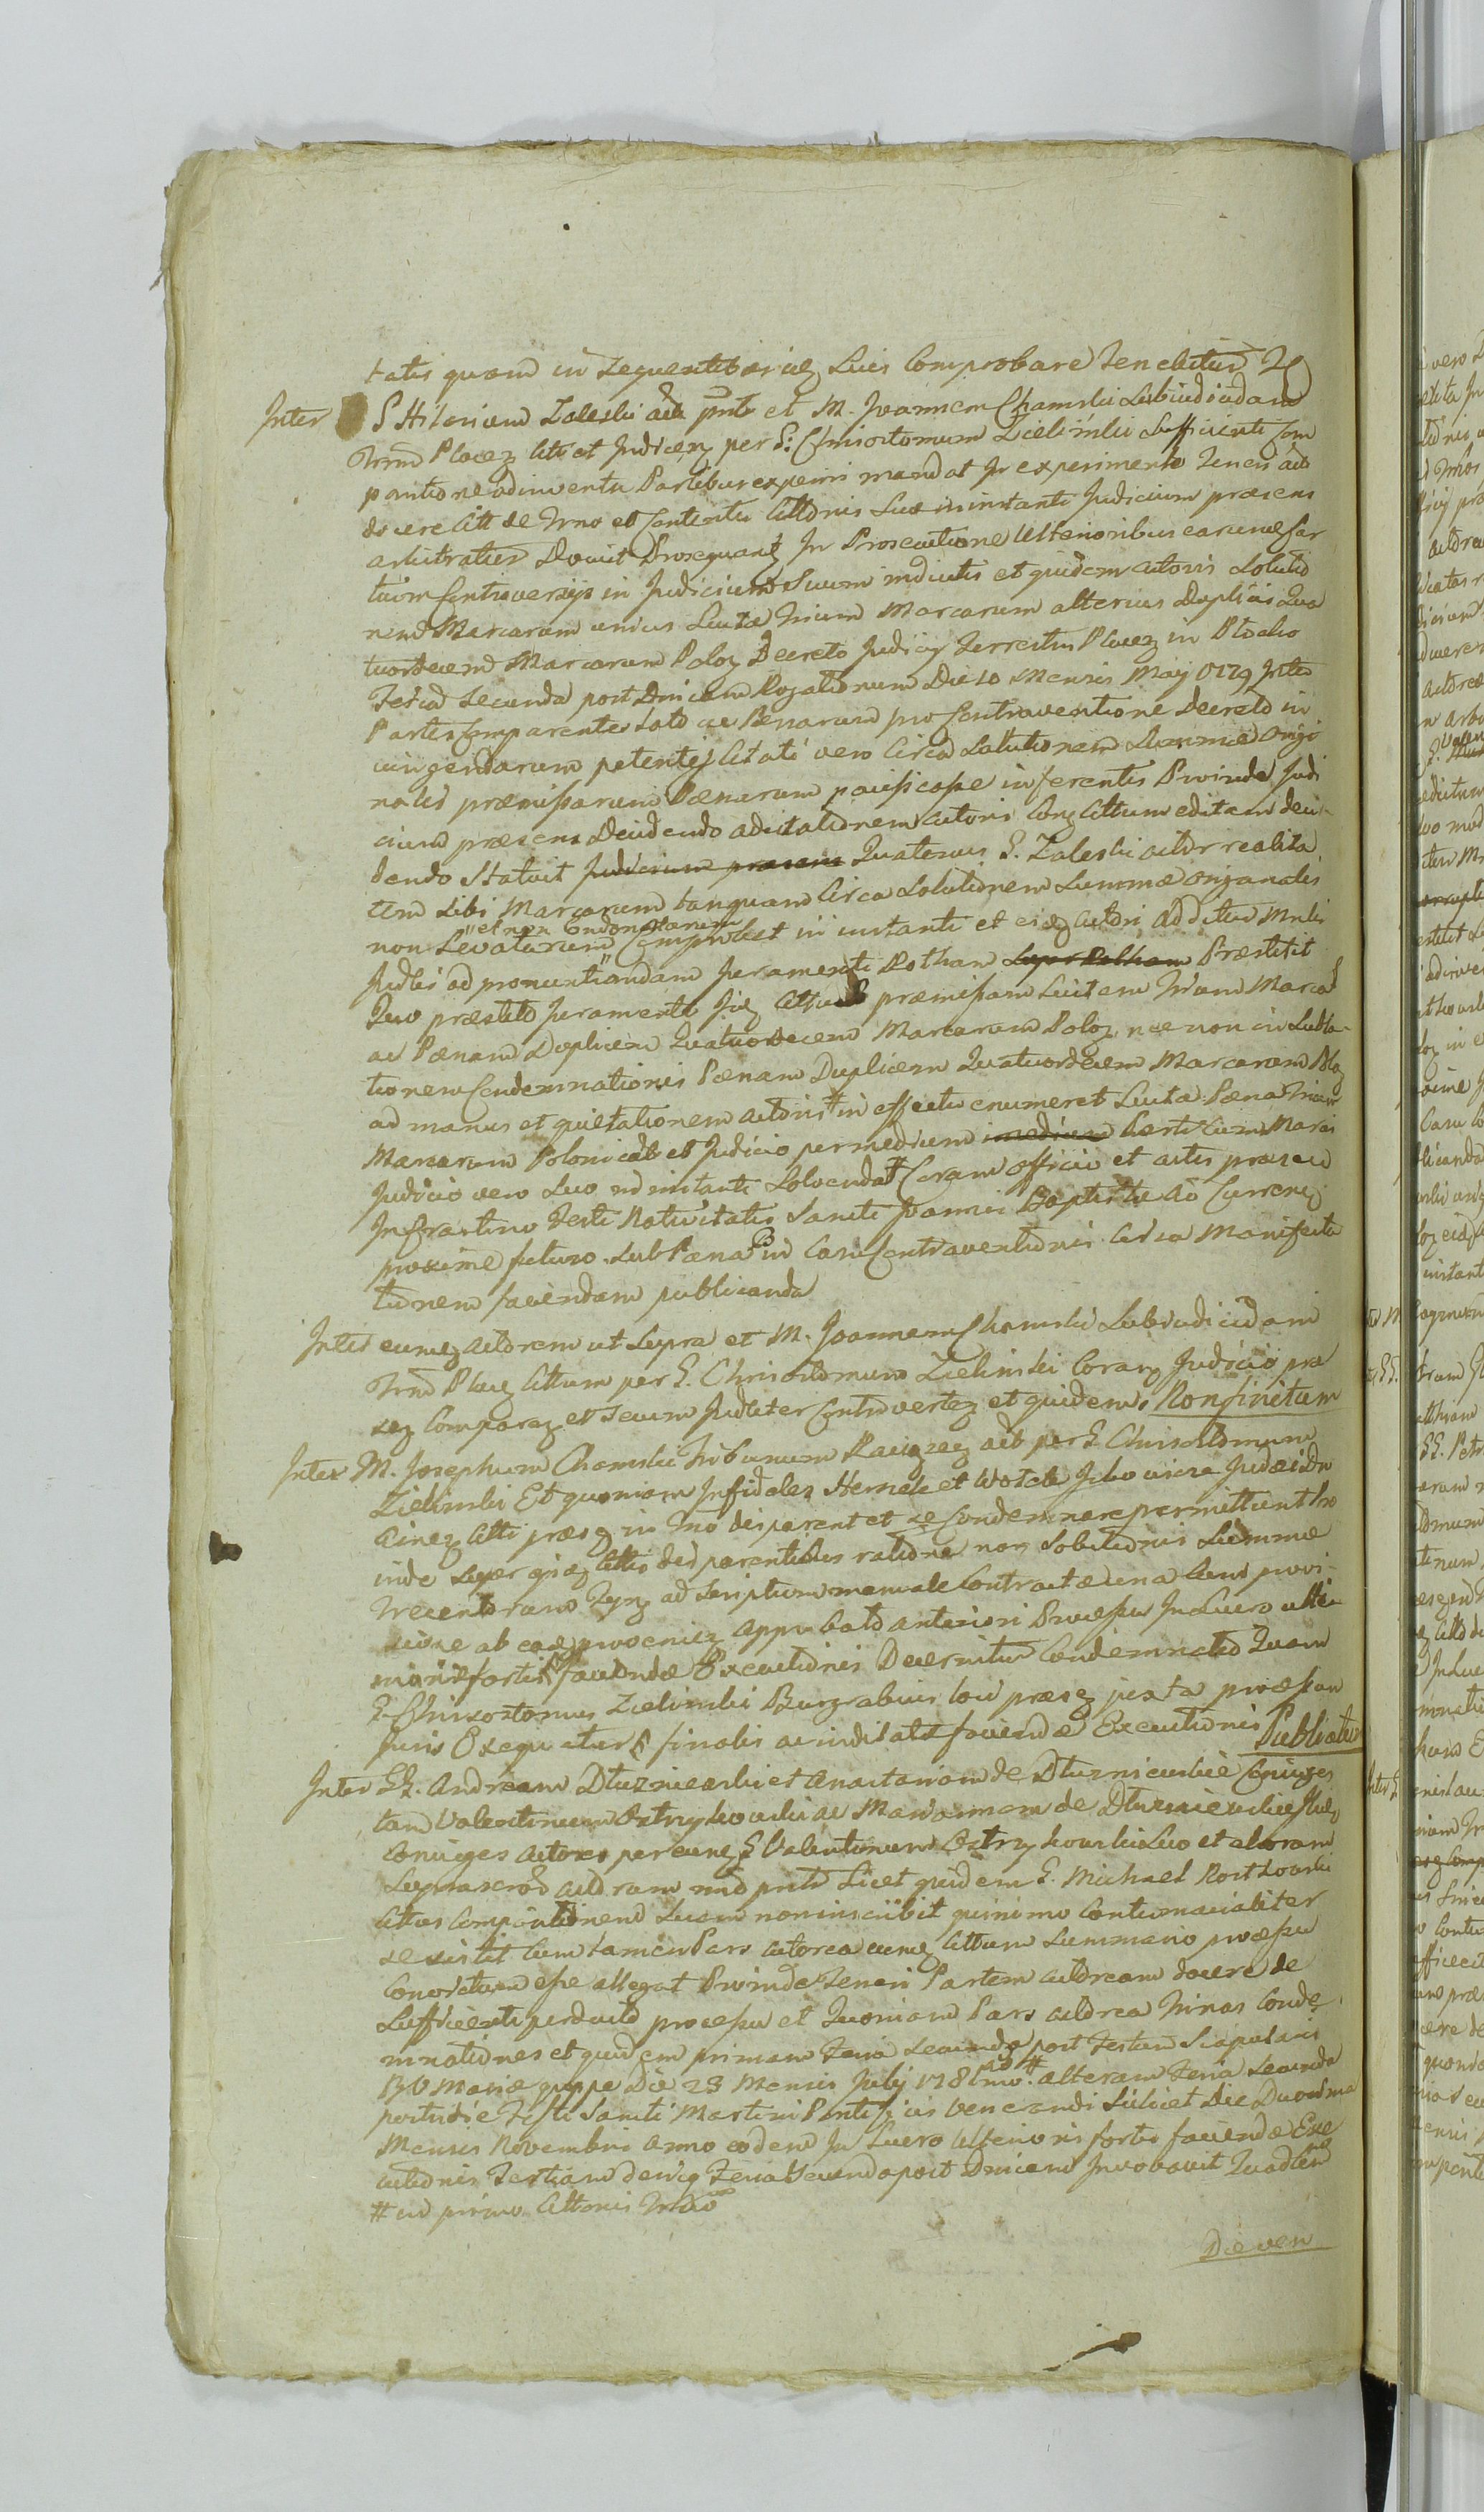 tatis quam in Sequentib9 arieq Suis Comprobare Tenebitur
Inter G Hilarium Zaleski act pnte et M. Joannem Chamski Subiudicidam
Trrm Plocez Citt et Judicez per G: Chrisostomum Zielinski Sufficienti Com
paritione adinventa Partibus experiri mandat Jn experimento Tenens act
docere Citt de Trno et Contentu Cittonis Suae in instanti Judicium praesens
arbitratur Docuit Prosequantz Jn Prosecutione Ulterioribus earumq Par
tium Controversijs in Judicium Suum indictis et quidem actoris Solutio
nem Marcarum unius Luitae Trium Marcarum alterius Duplicis Qua
tuordecem Marcarum Poloz Decreto Judicij Terrestris Plocez in Plocko
Feria Secunda post Dnicam Rogationum Die 10 Mensis Maij 0179 Inter
Partes Comparentes Lato ac Penarum pro Contraventione Decreto in
iungendarum petentis Citati vero Circa Solutionem Summae Origi
nalis praemissarum Paenarum pacificasse inferentis Proinde Judi
cium praesens Decidendo adcitationem actoris Conz Cittum editam deci-
dendo Statuit Judicium praesens Quatenus G. Zaleski actor realita
tem Sibi Marcarum tanquam Circa Solutionem Summae originalis
"et non Condonatarum
non Levatarum Comprobet in instanti et eidz actori additus Mnlis
Jndlis ad pronuntiandam Juramenti Rotham Super Rotham Praestitit
Quo praestito Juramento Jdz Cittus praemissam Luitam Trium Marcar
ac Paenam Duplicem Quatuordecem Marcarum Poloz nec non in Subla-
tionem Condemnationis Paenam Duplicem Quatuordecem Marcarum Ploz
ad manus et quietationem actoris # in effectu enumeret Luita Paena Trium
Marcarum Polonicalt et Judicio per medium medium Parti Cum Marcis
Judicio vero Suo in instanti Solvenda # Coram officio et actis praesen
In Crastino Festi Nativitatis Sancti Joannis Baptistae Ao Currenz
proxime futuro Sub Paena in Casu Contraventionis Circa Manifesta
tionem faciendam publicanda
Inter eumq actorem ut Supra et M. Joannem Chamski Subiudicidam
Trrm Plocz Cittum per G. Chrisostomum Zielinski Coram Judicio prae
sez Comparez et Secum Judliter Controvertez et quidem. Non finitum
Inter M. Josephum Chamski Tribunum Raciazez act per G Chrisostomum
Zielinski Et quoniam Infideles Hersek et Wolek
Citti praesz in Trno disparent et se Condemnare permittunt Pro
inde Super ijsdz Cittis disparentibus ratione non Solutionis Summae
Trecentorum Tynz ad Scriptum manuale Contractae una Cum provi-
sione ab eadz proveniez approbato anteriori Processu In Lucro ulte
rioris fortis faciendae Executionis Decernitur Condemnatio Quam
G. Chrisostomus Zielinski Burgrabius loci praesz juxta processum
Juris Exequetur finalis ac inditate faciendae Executionis Publicatur
Inter GG. Andream Dluzniewski et Anastasiam de Dluzniewskie Coniuges
tam Valentinum Ostrzykowski ac Mariannam de Dluzniewskie Stulz
Coniuges actores per eumq G Valentinum Ostrzykowski Suo et aliorum
Supraserod actorum nnd pntes Licet quidem G. Michael Rostkowski
Cittus Comparitionem Suam non inscribit quinimo Contumacialiter
se sistit Cum tamen Pars actorea eumq Cittum Summario processu
Convictum esse allegat Proinde Teneri Partem actoream docere de
Sufficienti perducto processu et Quoniam Pars actorea Trinas Conde
mnationes et quidem primam Feria Secunda post Festum Scapularis
BV Mariae quippe Die 23 Mensis Julij 178 # alteram Feria Secunda
postridie Festi Sancti Martini Pontificis Venerandi Scilicet Die Duodecima
Mensis Novembris Anno eodem In Lucro Ulterioris fortis faciendae Exe
cutionis Tertiam deniq Feria Secunda post Dnicam Invocavit Quadlem
# in primo Cittonis Trno
Die ven